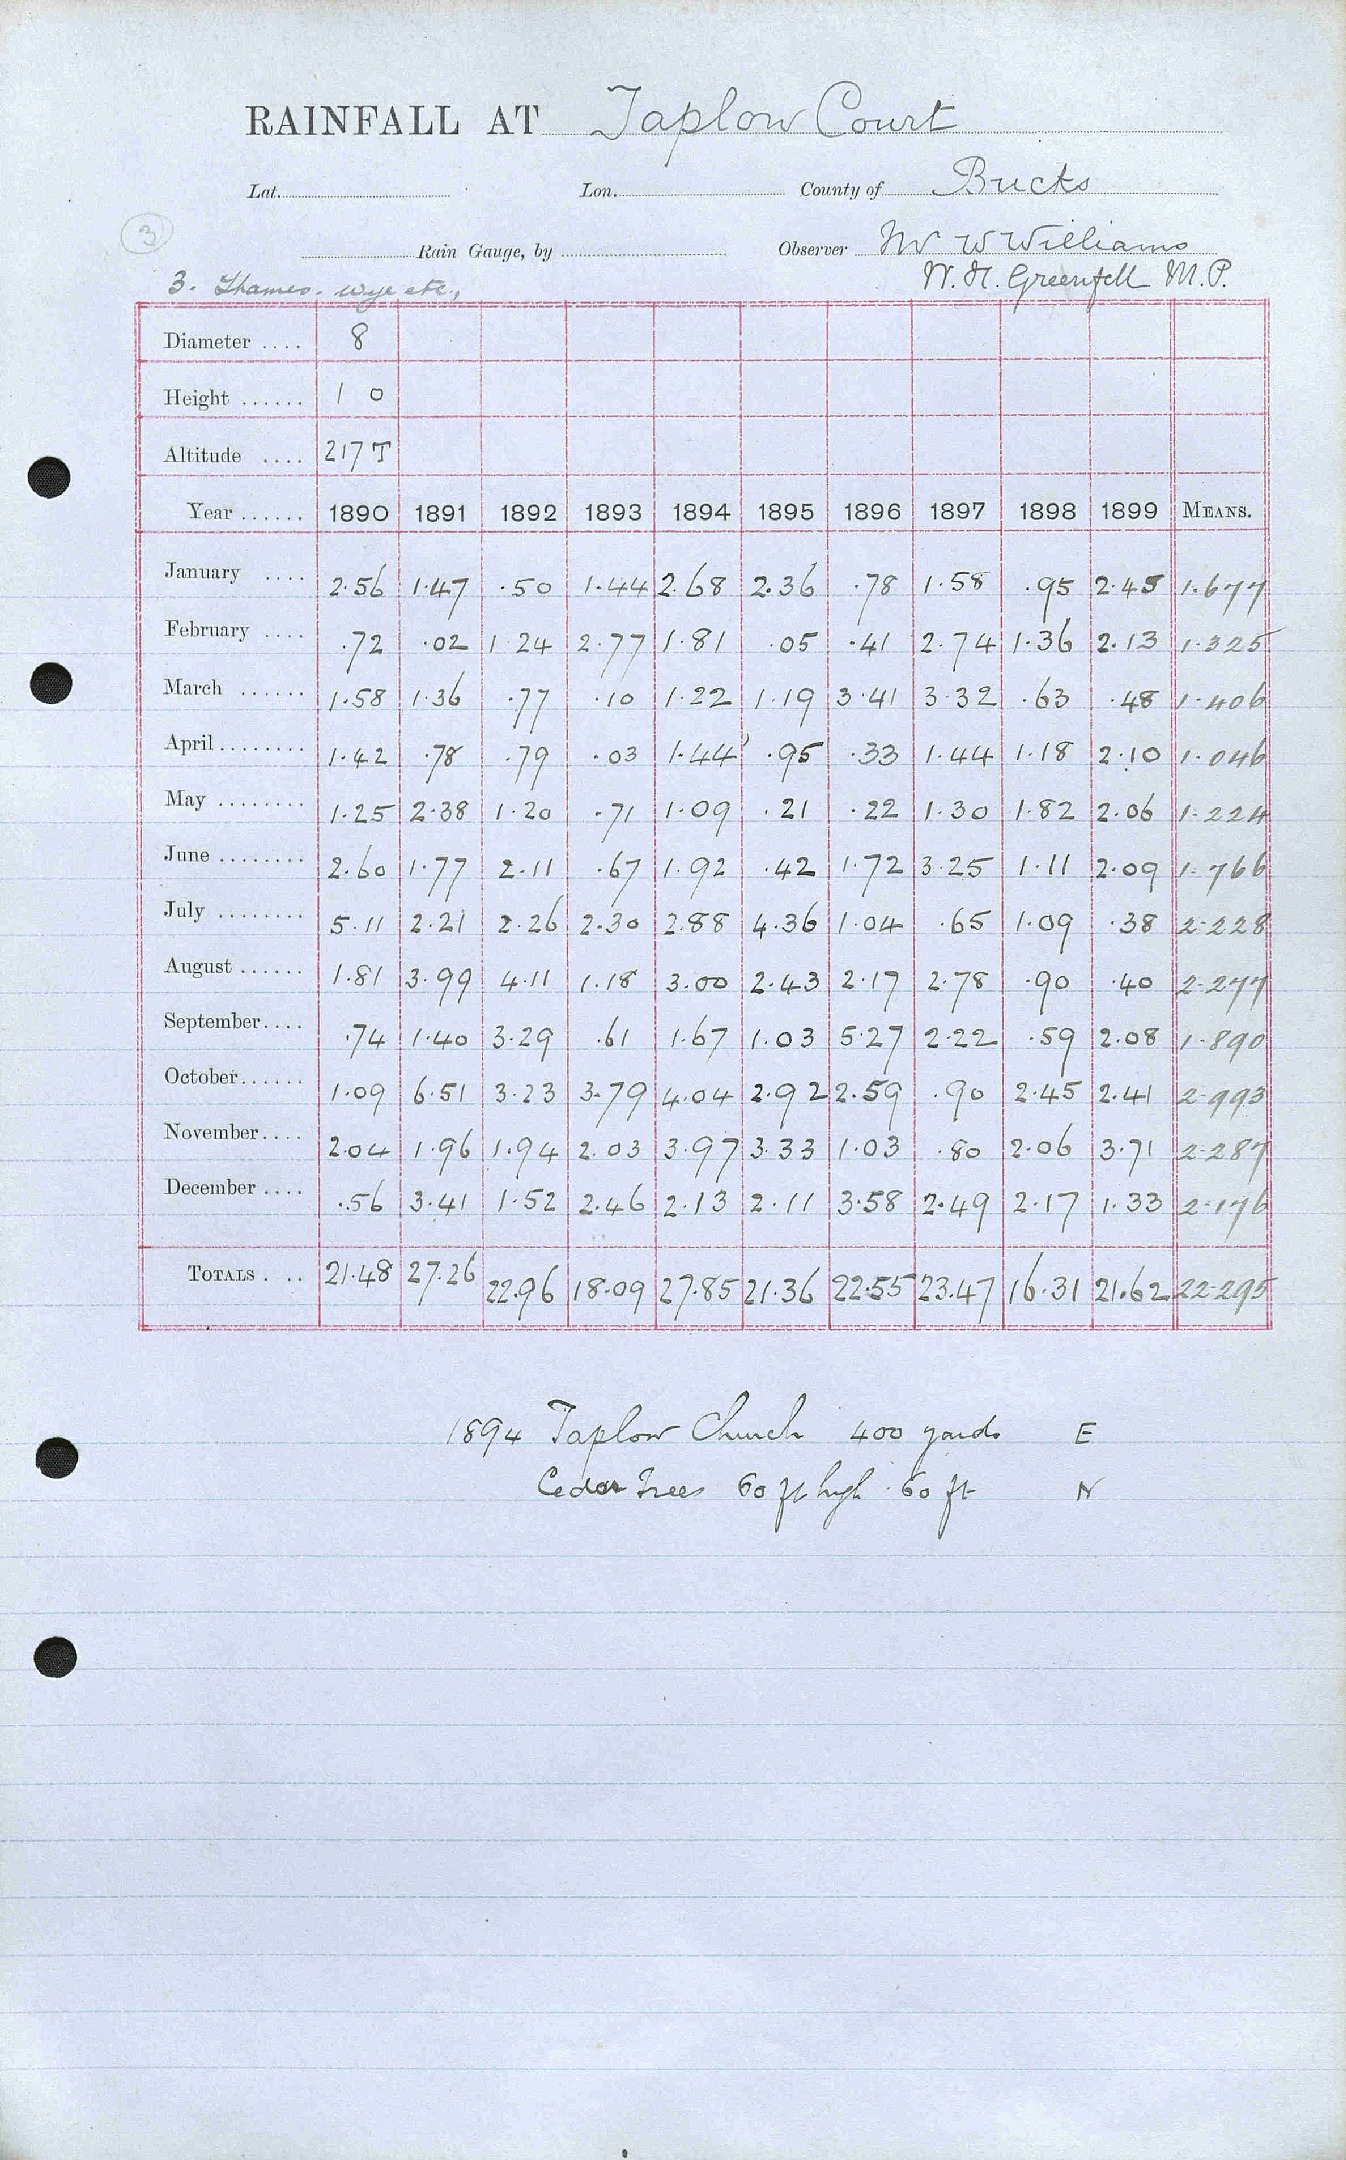 RAINFALL AT Taplow Court
Lat. Lon. County of Bucks
3 Rain Gauge, by Observer Mr W Williams
3. Thames. Wye etc., W. H. Greenfell M.P.
Diameter .... 8
Height ...... 1 0
Altitude .... 217 T
Year ...... 1890 1891 1892 1893 1894 1895 1896 1897 1898 1899 MEANS.
January .... 2.56 1.47 .50 1.44 2.68 2.36 .78 1.58 .95 2.45 1.677
February .... .72 .02 1.24 2.77 1.81 .05 .41 2.74 1.36 2.13 1.325
March ...... 1.58 1.36 .77 .10 1.22 1.19 3.41 3.32 .63 .48 1.406
April ........ 1.42 .78 .79 .03 1.44 .95 .33 1.44 1.18 2.10 1.046
May ........ 1.25 2.38 1.20 .71 1.09 .21 .22 1.30 1.82 2.06 1.224
June ........ 2.60 1.77 2.11 .67 1.92 .42 1.72 3.25 1.11 2.09 1.766
July ........ 5.11 2.21 2.26 2.30 2.88 4.36 1.04 .65 1.09 .38 2.228
August ...... 1.81 3.99 4.11 1.18 3.00 2.43 2.17 2.78 .90 .40 2.277
September .... .74 1.40 3.29 .61 1.67 1.03 5.27 2.22 .59 2.08 1.890
October ...... 1.09 6.51 3.23 3.79 4.04 2.92 2.59 .90 2.45 2.41 2.993
November .... 2.04 1.96 1.94 2.03 3.97 3.33 1.03 .80 2.06 3.71 2.287
December .... .56 3.41 1.52 2.46 2.13 2.11 3.58 2.49 2.17 1.33 2.176
TOTALS . .. 21.48 27.26 22.96 18.09 27.85 21.36 22.55 23.47 16.31 21.62 22.295
1894 Taplow Church 400 yards E
Cedar Trees 60 ft high . 60 ft N